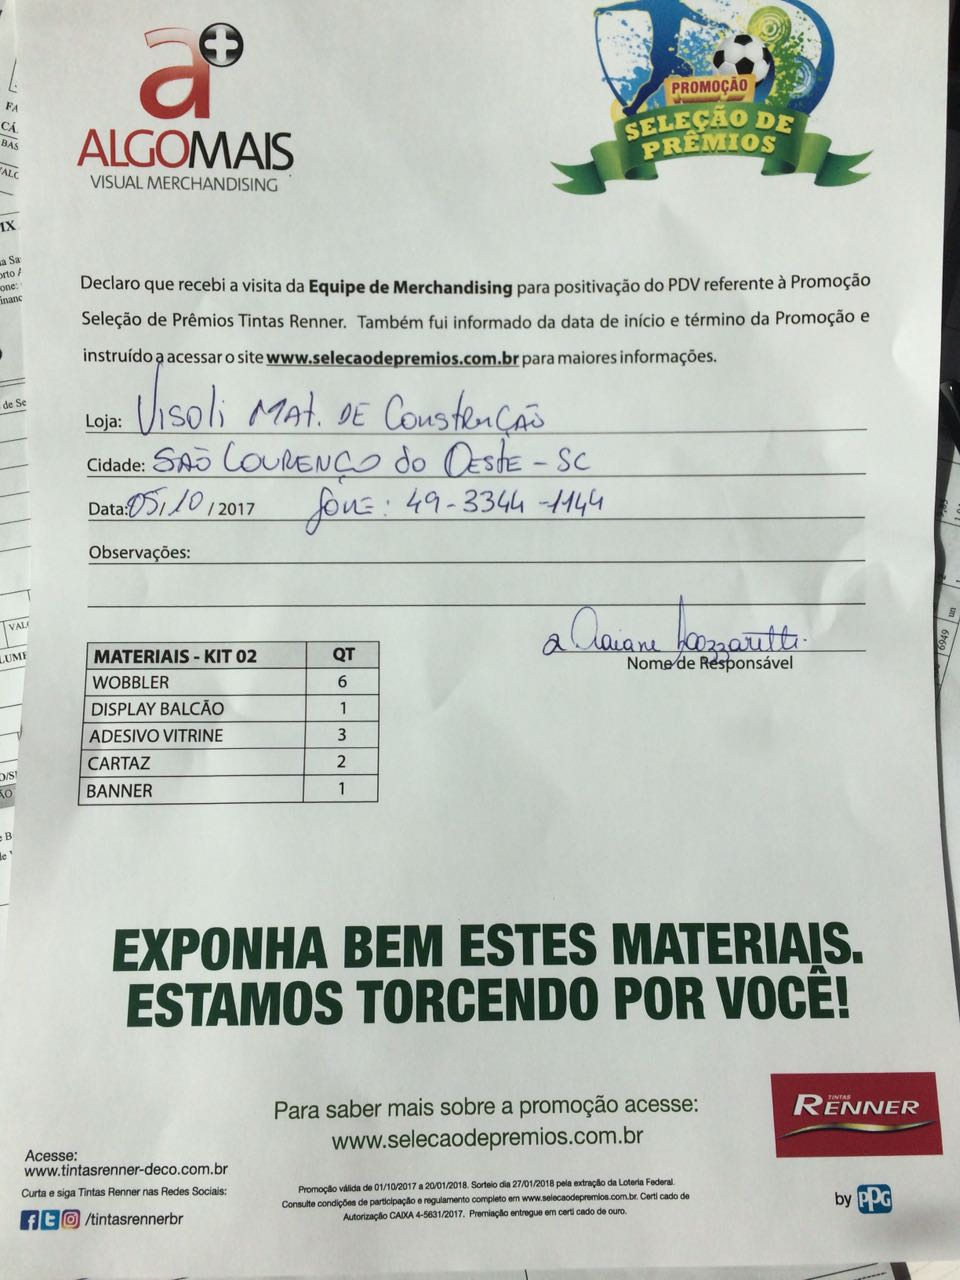 a+
ALGOMAIS
VISUAL MERCHANDISING
PROMOÇÃO
SELEÇÃO DE
PRÊMIOS
Declaro que recebi a visita da Equipe de Merchandising para positivação do PDV referente à Promoção
Seleção de Prêmios Tintas Renner. Também fui informado da data de início e término da Promoção e
instruído a acessar o site www.selecaodepremios.com.br para maiores informações.
Loja: Visoli MAt. DE Construção
Cidade: SÃO LOURENÇO do OESTE - SC
Data: 05/10/2017 fone: 49-3344-1144
Observações:
Nome de Responsável
MATERIAIS - KIT 02 QT
WOBBLER 6
DISPLAY BALCÃO 1
ADESIVO VITRINE 3
CARTAZ 2
BANNER 1
EXPONHA BEM ESTES MATERIAIS.
ESTAMOS TORCENDO POR VOCÊ!
Para saber mais sobre a promoção acesse:
www.selecaodepremios.com.br
TINTAS
RENNER
Acesse:
www.tintasrenner-deco.com.br
Curta e siga Tintas Renner nas Redes Sociais:
/tintasrennerbr
Promoção válida de 01/10/2017 a 20/01/2018. Sorteio dia 27/01/2018 pela extração da Loteria Federal.
Consulte condições de participação e regulamento completo em www.selecaodepremios.com.br. Certi cado de
Autorização CAIXA 4-5631/2017. Premiação entregue em certi cado de ouro.
by PPG